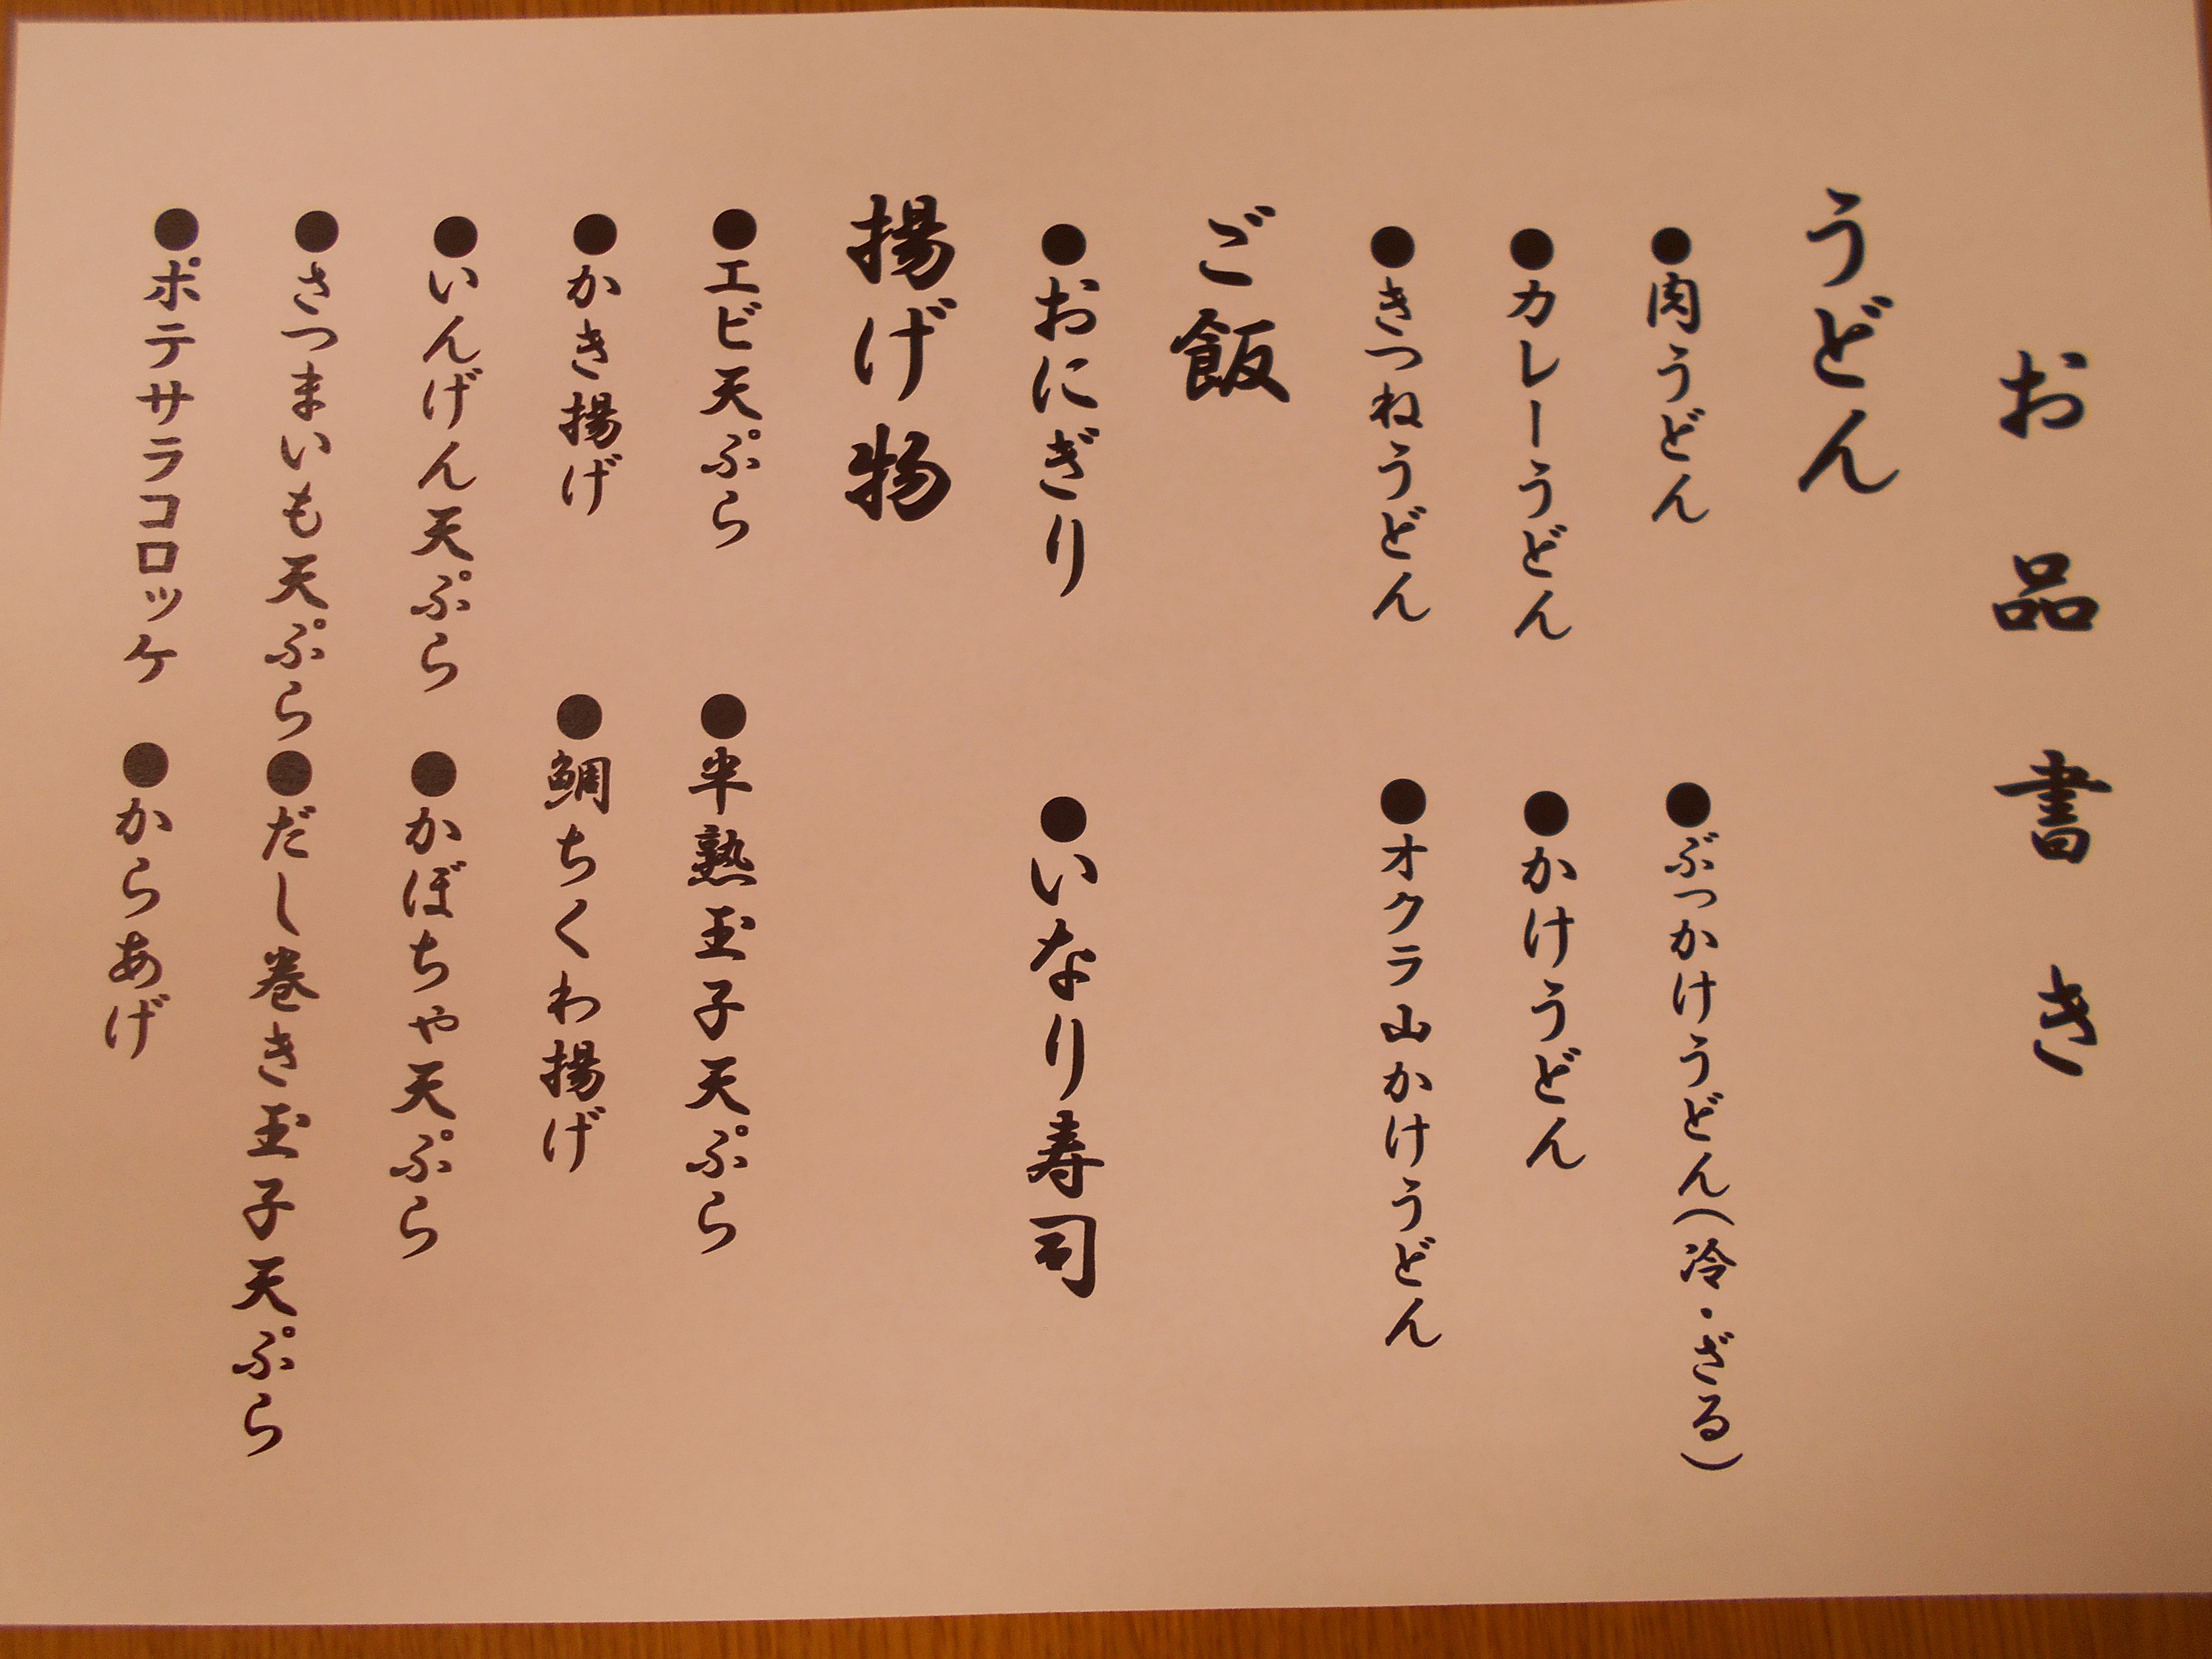 お品書き
うどん
●肉うどん
●ぶっかけうどん(冷・ざる)
●カレーうどん
●かけうどん
●きつねうどん
●オクラ山かけうどん
ご飯
●おにぎり
●いなり寿司
揚げ物
●エビ天ぷら
●半熟玉子天ぷら
●かき揚げ
●鯛ちくわ揚げ
●いんげん天ぷら
●かぼちゃ天ぷら
●さつまいも天ぷら
●だし巻き玉子天ぷら
●ポテサラコロッケ
●からあげ